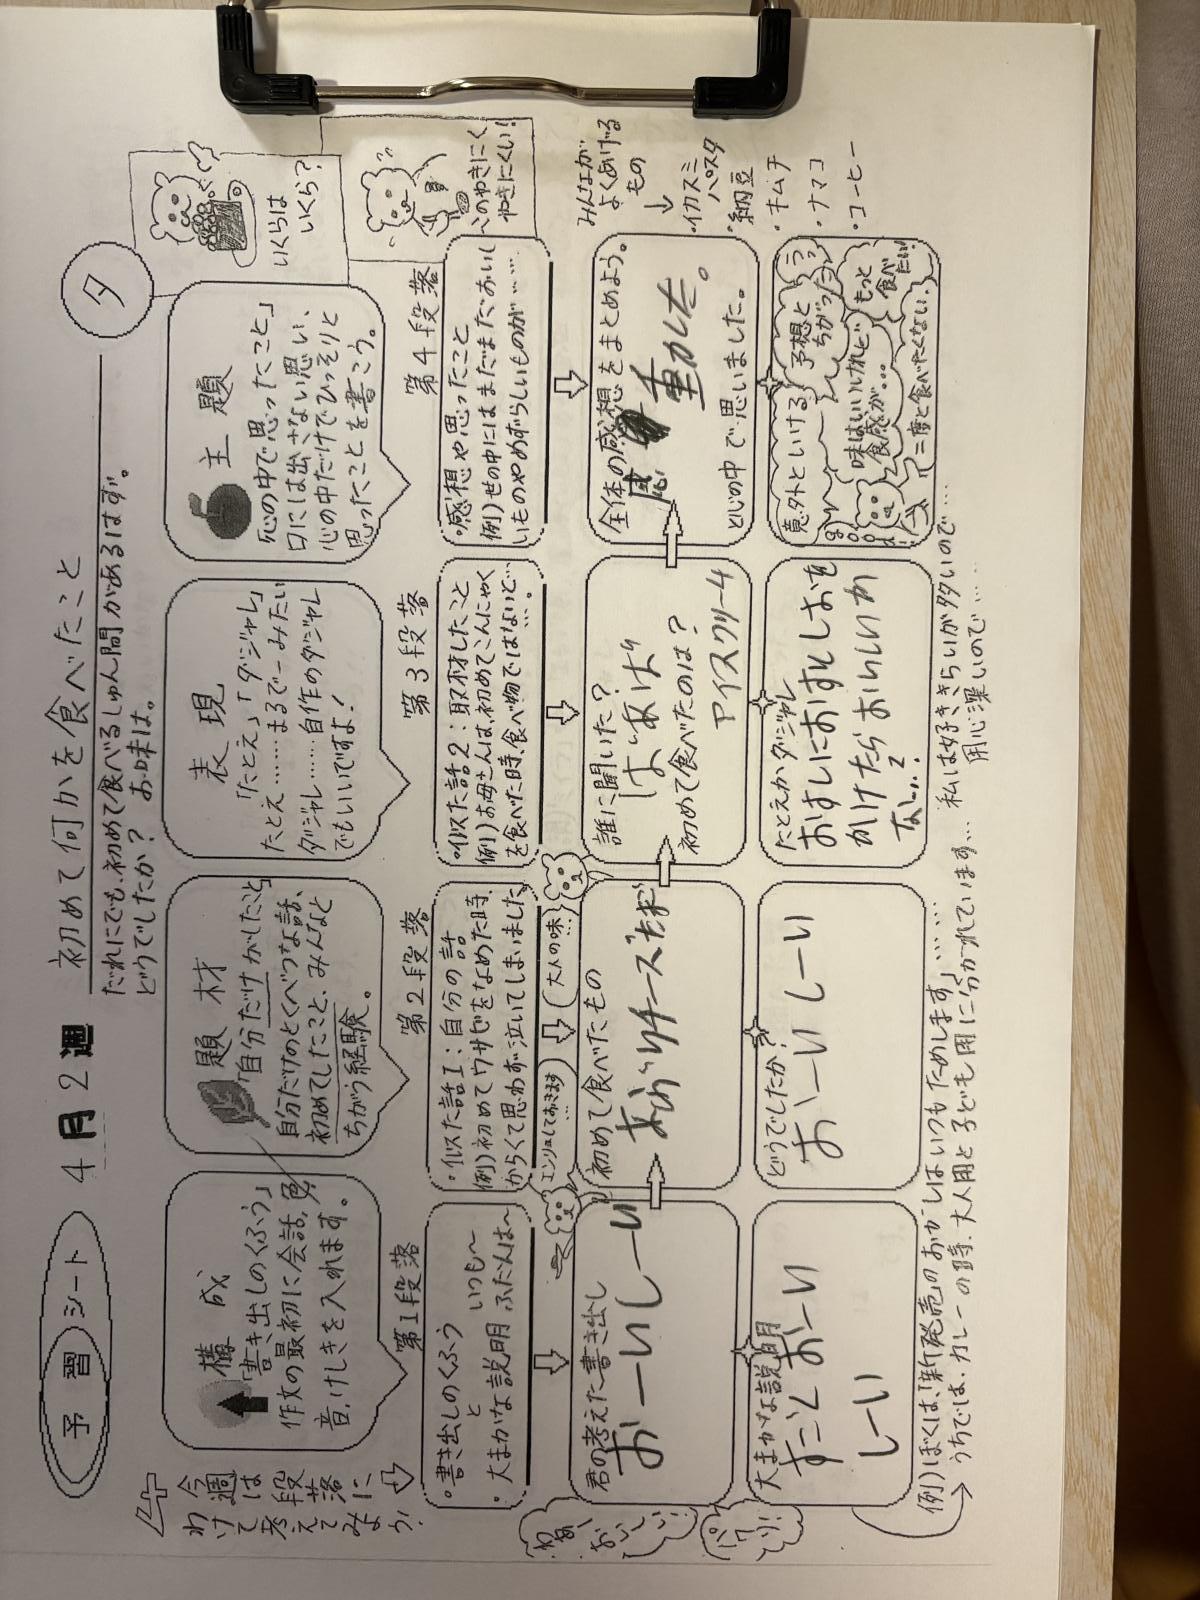 予習シート
4月2週
初めて何かを食べたこと
夕
だれにでも、初めて食べるしゅん間があるはず。
どうでしたか? お味は。
今週は段落に
わけて考えてみよう!
構成
「書き出しのくふう」
作文の最初に会話、色、
音、けしきを入れます。
題材
「自分だけがしたこと」
自分だけのとくべつな話、
初めてしたこと、みんなと
ちがう経験。
表現
「たとえ」「ダジャレ」
たとえ……まるで〜みたい
ダジャレ……自作のダジャレ
でもいいですよ!
主題
「心の中で思ったこと」
口には出さない思い、
心の中だけでひっそりと
思ったことを書こう。
いくらは
いくら?
このやきにく
やきにくい!
第1段落
・書き出しのくふう
と
・大まかな説明 いつも〜
ふだんは〜
第2段落
・似た話1:自分の話
例)初めてワサビをなめた時、
からくて思わず泣いてしまいました
第3段落
・似た話2:取材したこと
例)お母さんは、初めてこんにゃく
を食べた時、食べ物ではないと…。
第4段落
・感想や思ったこと
例)世の中にはまだまだおいし
いものやめずらしいものが……
エンリョしておきます…
大人の味…
君の考えた書き出し
おーいしーい
初めて食べたもの
あぶりチーズ
誰に聞いた?
ばあば
初めて食べたのは?
アイスクリーム
全体の感想をまとめよう。
感動した。
と心の中で思いました。
わぁー
おいしーい!
パクリ!
大まかな説明
すごくおーい
しーい
どうでしたか?
おーいしーい
たとえかダジャレ
おすしにおすとしおを
かけたらおいしいか
な…?
意外といける
予想と
ちがった
味はいいけれど
食感が…
もっと
食べたい!
二度と食べたくない。
みんなが
よくあげる
もの
↓
・イカスミ
パスタ
・納豆
・キムチ
・ナマコ
・コーヒー
例)ぼくは、「新発売」のおかしはいつもためします」……
うちでは、カレーの時、大人用と子ども用に分かれています…
私は好ききらいが多いので…
用心深いので……